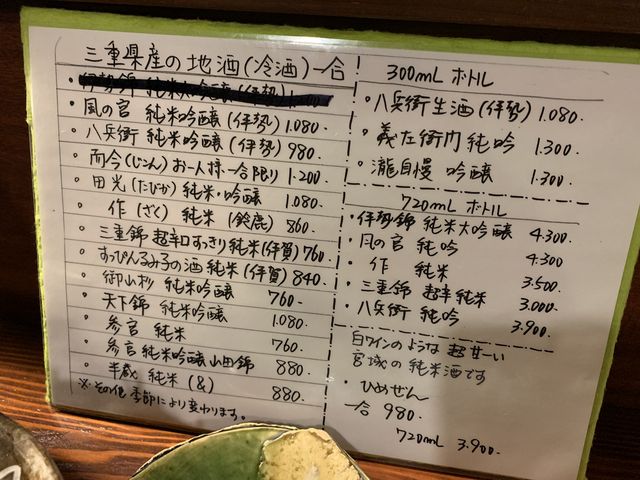 三重県産の地酒(冷酒)一合
・風の宮 純米吟醸(伊勢)1.080.
・八兵衛 純米吟醸(伊勢)980.
・而今(じこん)お一人様一合限り1.200.
・田光(たびか)純米・吟醸 1.080.
・作(ざく)純米(鈴鹿)860.
・三重錦 超辛口すっきり純米(伊賀)760.
・すっぴんるみ子の酒 純米(伊賀)840.
・御山杉 純米吟醸 760-
・天下錦 純米吟醸 1.080.
・参宮 純米 760.
・参宮 純米吟醸山田錦 880.
・半蔵 純米(&) 880.
※その他季節により変わります。
300mL ボトル
・八兵衛生酒(伊勢)1.080.
・義左衛門 純吟 1.300.
・瀧自慢 吟醸 1.300.
720mL ボトル
・伊勢錦 純米大吟醸 4.300.
・風の宮 純吟 4.300
・作 純米 3.500.
・三重錦 超辛純米 3.000.
・八兵衛 純吟 3.900.
白ワインのような超甘ーい
宮城の純米酒です
・ひめぜん
一合 980.
720mL 3.900.